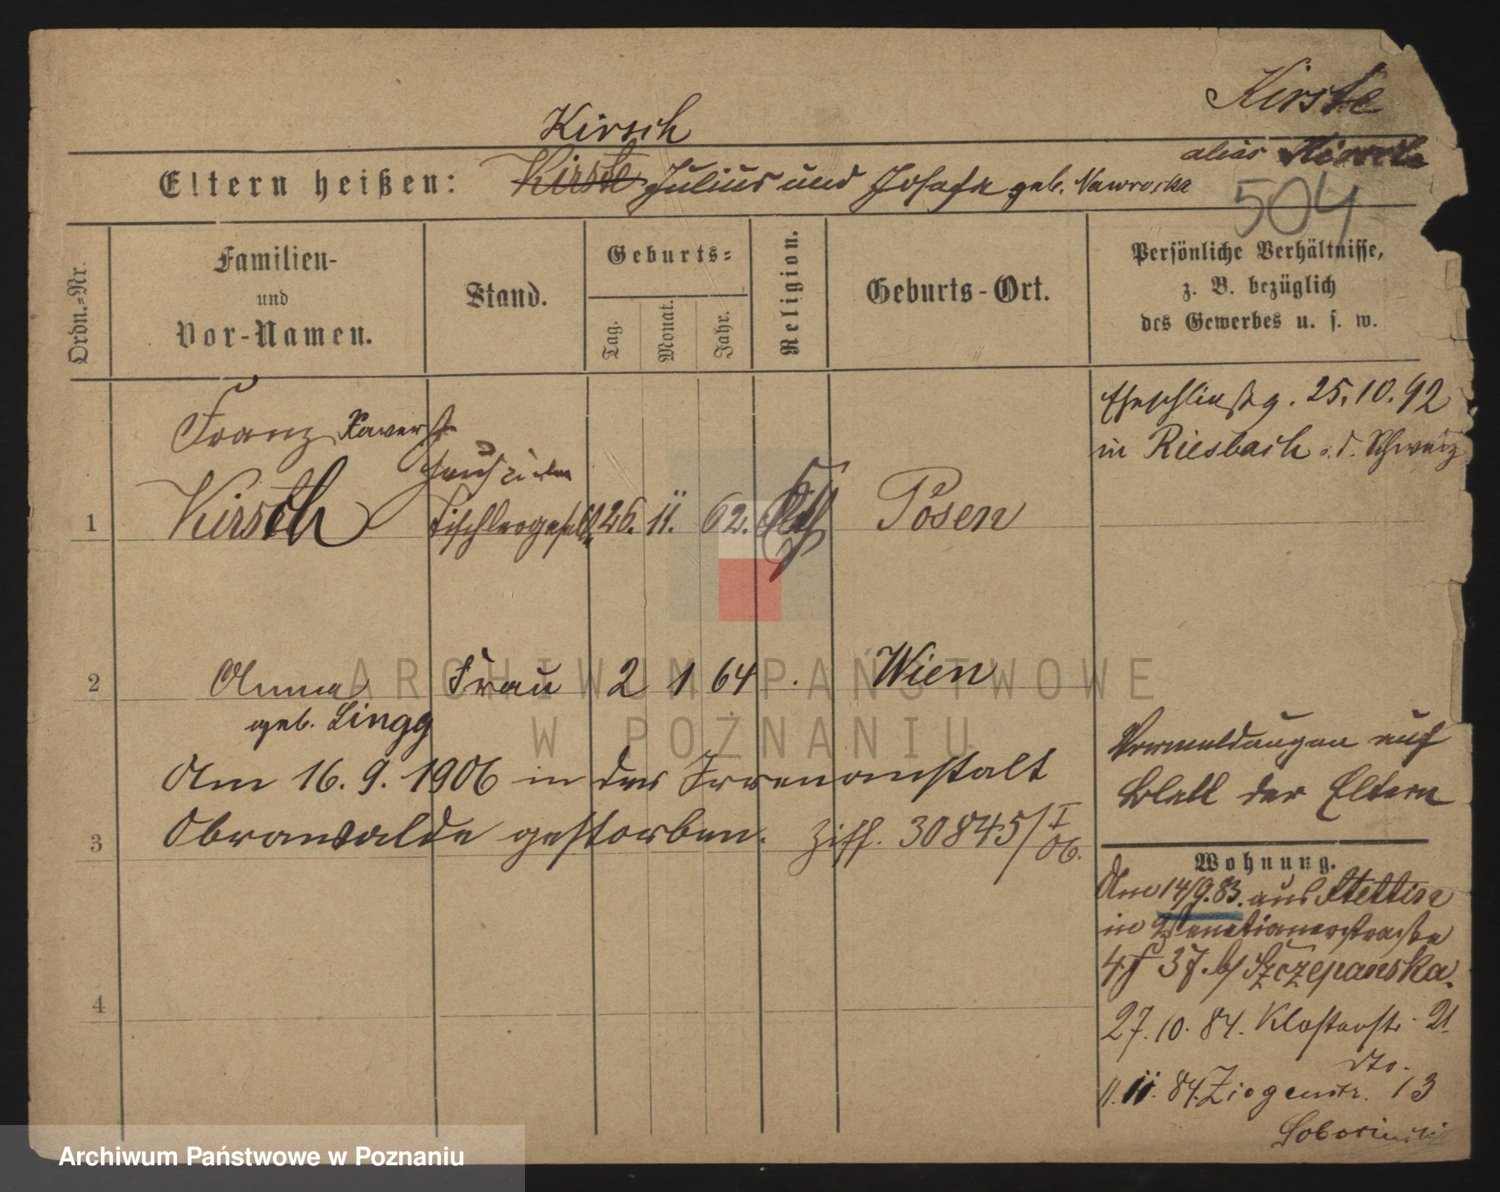 Kirste
Kirsch
alias
Eltern heißen: Kirste Julius und Josefa geb. Nawrocka
504
Ordn.-Nr.
Familien-
und
Vor-Namen.
Stand.
Geburts-
Tag.
Monat.
Jahr.
Religion.
Geburts-Ort.
Persönliche Verhältnisse,
z. B. bezüglich
des Gewerbes u. s. w.
Franz Xaver
1 Kirsch Tischlergeselle 26. 11. 62. kth Posen
Eheschließg. 25.10.92
in Riesbach i. d. Schweiz
2 Anna Frau 2 1 64 Wien
geb. Lingg
Am 16. 9. 1906 in der Irrenanstalt
3 Obrawalde gestorben. Ziff. 30845/I 06.
4
Vermeldungen auf
Blatt der Eltern
Wohnung.
Am 14/9.83. aus Stettin
in Venetianerstraße
4/ 37. b/ Szczepanska.
27.10.84. Klosterstr. 21.
dto.
11.11.84. Ziegenstr. 13
ARCHIWUM PAŃSTWOWE
W POZNANIU
Archiwum Państwowe w Poznaniu